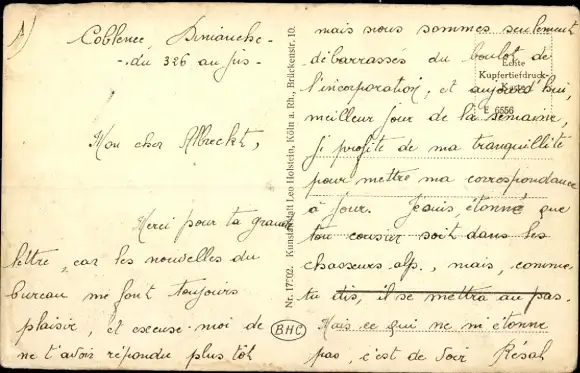 Coblence, Dimanche -
- du 326 au jus -
Mon cher Albrecht,
Merci pour ta grande
lettre, car les nouvelles du
bureau me font toujours
plaisir, et excuse-moi de
ne t'avoir répondu plus tôt
Nr. 17202. Kunstanstalt Leo Holstein, Köln a. Rh., Brückenstr. 10.
BHC
Echte
Kupfertiefdruck-
Karte
E 6556
mais nous sommes seulement
débarrassés du boulot de
l'incorporation, et aujourd'hui,
meilleur jour de la semaine,
je profite de ma tranquillité
pour mettre ma correspondance
à jour. Je suis étonné que
ton cousin soit dans les
chasseurs alp., mais, comme
tu dis, il se mettra au pas.
Mais ce qui ne m'étonne
pas, c'est de voir Résal